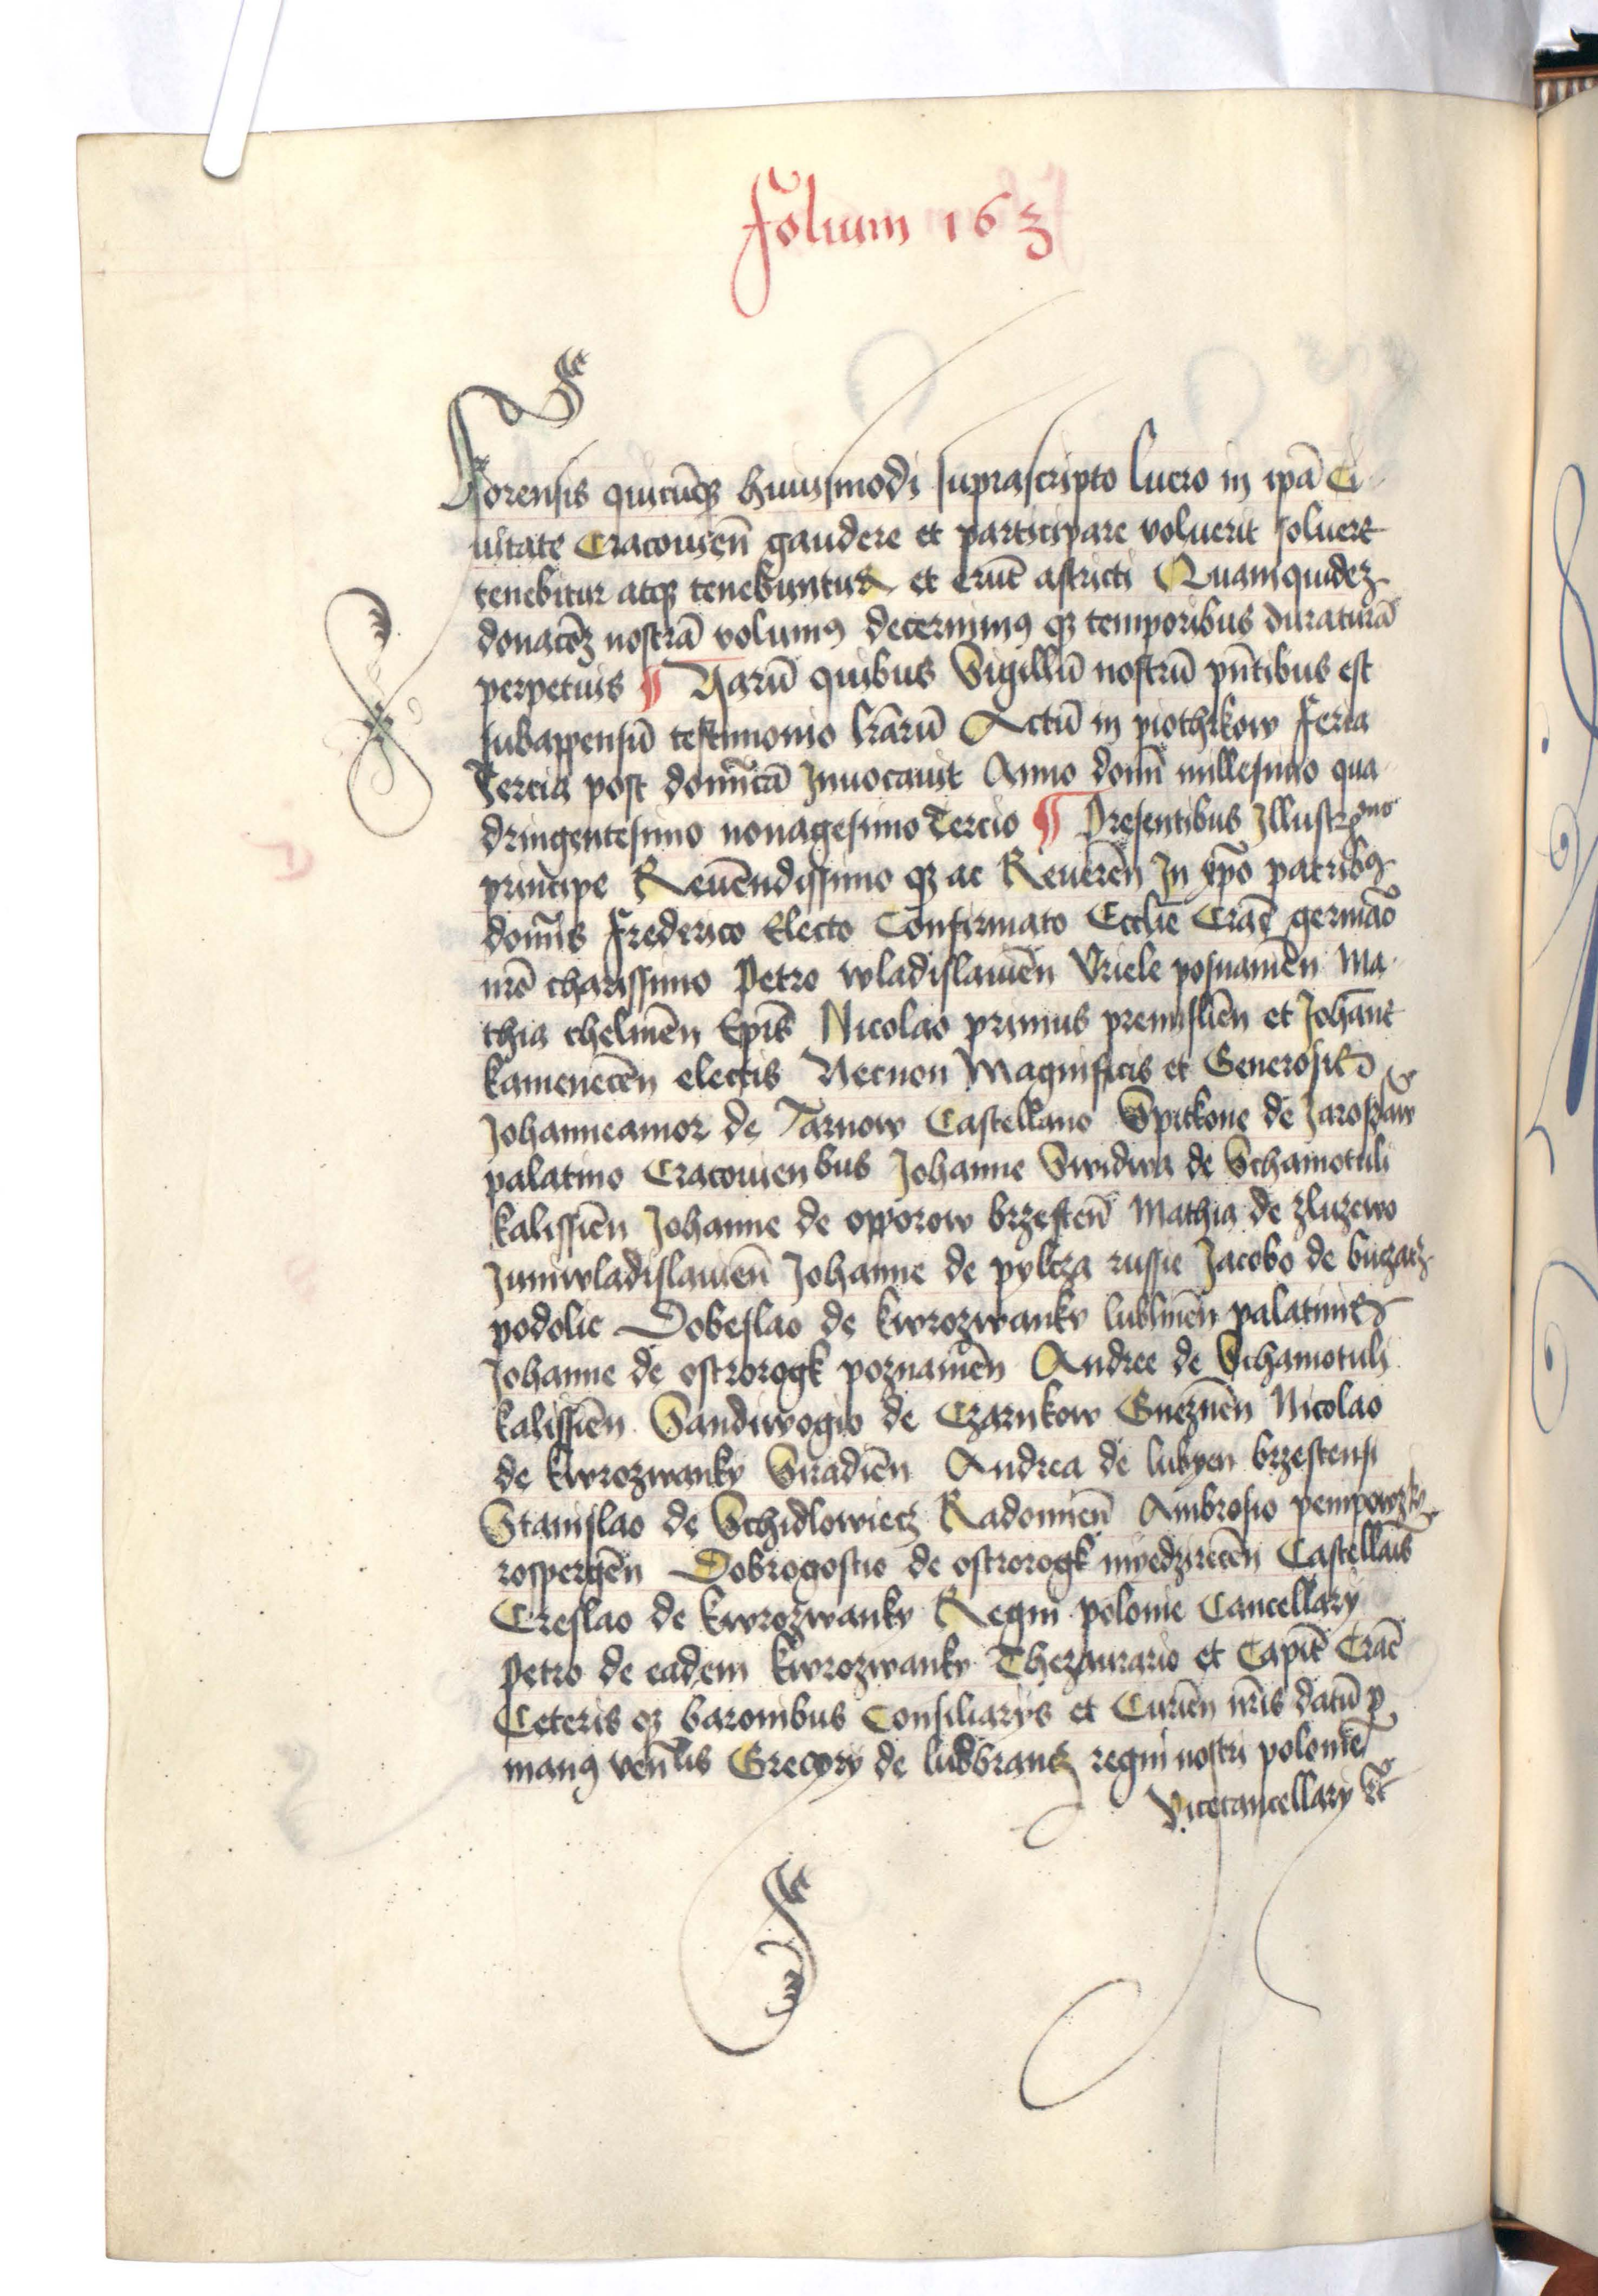 Folium 163
Forensis quicūqȝ huiusmodi suprascripto lucro in ipā Ci
uitate Cracouien̄ gaudere et participare voluerit soluere
tenebitur atqȝ tenebuntur et erūt astricti Quamquidez
donacōȝ nostrā volumꝯ decernimꝯ qȝ temporibus duraturā
perpetuis ¶ Harū quibus Sigillū nostrū pn̄tibus est
subappensū testimonio lr̄arū Actū in piothrkow Feria
Tercia post domīcā Inuocauit Anno domī millesimo qua
dringentesimo nonagesimo Tercio ¶ Presentibus Illustrmo
principe Reuēndissimo qȝ ac Reuerēn In xpō patribꝯ
domīs Frederico Electo Confirmato Ecclīe Crac̄ germāo
nr̄o charissimo Petro wladislauien̄ Vriele posnanien̄ Ma
thia chelmen̄ Epīs Nicolao primus premislien̄ et Johanne
kamenecen̄ electis Necnon Magnificis et Generosis
Johanneamor de Tarnow Castellano Spitkone de Jaroslaw
palatino Cracouienbus Johanne Swidwa de Schamotuli
kalissien̄ Johanne de opporow brzesten̄ Mathia de zluzewo
Juniwladislauien̄ Johanne de pylcza russie Jacobo de buczacz
podolie Dobeslao de kwrozwanky lublinen̄ palatinis
Johanne de ostrorogk poznanien̄ Andree de Schamotuli
kalissien̄ Sandiwogio de Czarnkow Gneznen̄ Nicolao
de kwrozwanky Siradien̄ Andrea de lubyen brzestensi
Stanislao de Schidlowiecz Radomien̄ Ambrosio pempowzky
rospergen̄ Dobrogostio de ostrorogk myedzirecen̄ Castellais
Creslao de kwrozwanky Regni polonie Cancellary
Petro de eadem kwrozwanky Thezaurario et Capit̄ Crac̄
Ceteris qȝ baronibus Consiliarys et Curien̄ nr̄is datū ꝑ
manꝯ ven̄lis Gregory de ludbrancz regni nostri polonie
Vicecancellary etc̄